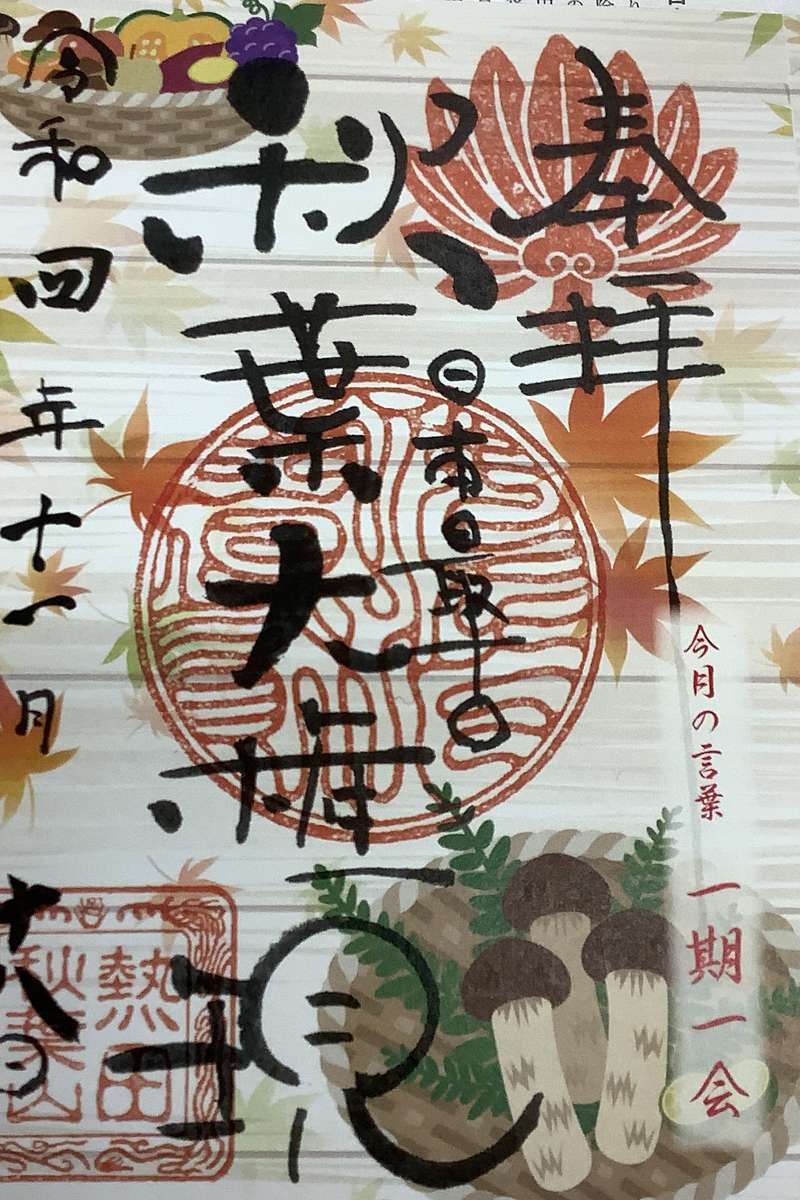 奉拝
今月の言葉 一期一会
日本最古
秋葉大権現
令和四年十一月
十八日
熱田
秋葉山